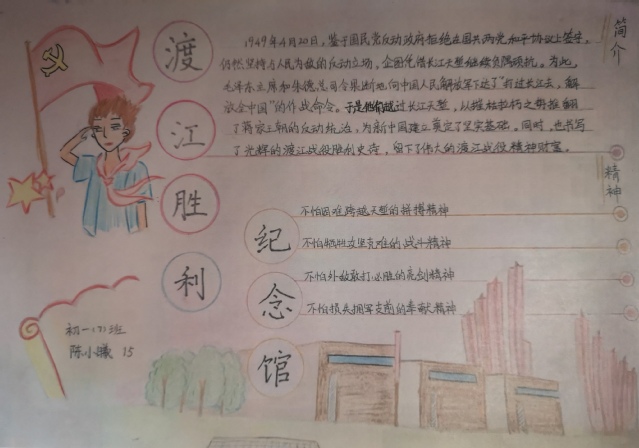 渡江胜利
纪念馆
简介
1949年4月20日，鉴于国民党反动政府拒绝在国共两党和平协议上签字，
仍然坚持与人民为敌的反动立场，企图凭借长江天堑继续负隅顽抗。为此，
毛泽东主席和朱德总司令果断地向中国人民解放军下达了“打过长江去，解
放全中国”的作战命令。于是他们越过长江天堑，以摧枯拉朽之势推翻
了蒋家王朝的反动统治，为新中国建立奠定了坚实基础。同时，也书写
了光辉的渡江战役胜利史诗，留下了伟大的渡江战役精神财富。
精神
不怕困难跨越天堑的拼搏精神
不怕牺牲攻坚克难的战斗精神
不怕外敌敢打必胜的亮剑精神
不怕损失拥军支前的奉献精神
初一(7)班
陈小曦 15